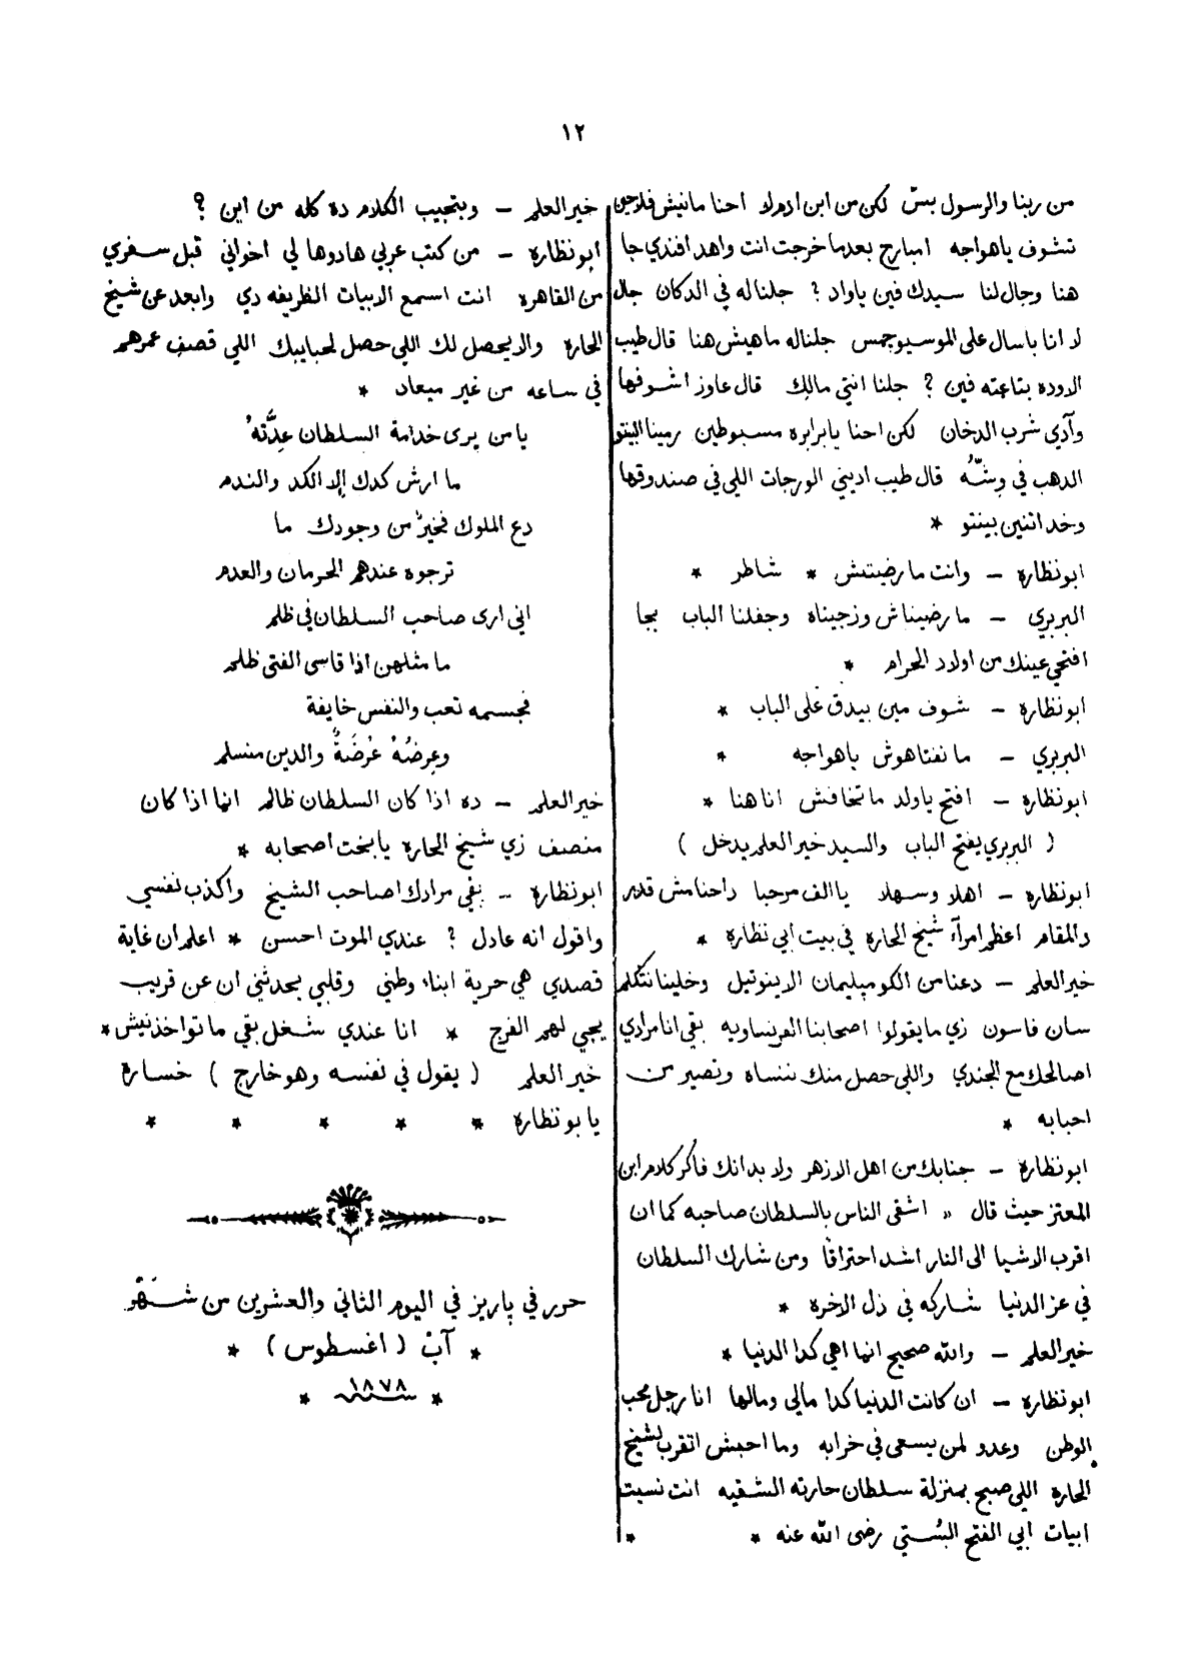 ١٢
من ربنا والرسول بسّ لكن من ابن ادم لا احنا مانيش فلاحين
تشوف ياهواجه امبارح بعدما خرجت انت واهد افندي جا
هنا وجال لنا سيدك فين ياواد ؟ جلناله في الدكان جال
لا انا باسال على الموسيو جمس جلناله ماهيش هنا قال طيب
الاوده بتاعته فين ؟ جلنا انتي مالك قال عاوز اشوفها
وآدي شرب الدخان لكن احنا يابرابره مسبوطين رمينا البنتو
الدهب في وشّه قال طيب اديني الورجات اللي في صندوقها
وخد اتنين بينتو *
ابونظارة — وانت مارضيتش * شاطر *
البربري — مارضيناش وزجيناه وجفلنا الباب بجا
افتحي عينك من اولاد الحرام *
ابونظارة — شوف مين بيدق على الباب *
البربري — مانفتاهوش ياهواجه *
ابونظارة — افتح ياولد ماتخافش اناهنا *
( البربري يفتح الباب والسيد خير العلم يدخل )
ابونظاره — اهلا وسهلا ياالف مرحبا داحنامش قدر
دالمقام اعظم امرآء شيخ الحارة في بيت ابي نظارة *
خير العلم — دعنا من الكومپليمان الاينوتيل وخلينا نتكلم
سان فاسون زي مايقولوا اصحابنا الفرنساويه بقى انا مرادي
اصالحك مع الجندي واللي حصل منك ننساه وتصير من
احبابه *
ابونظارة — جنابك من اهل الازهر ولا بد انك فاكر كلام ابن
المعتز حيث قال « اشقى الناس بالسلطان صاحبه كما ان
اقرب الاشيا الى النار اشد احتراقًا ومن شارك السلطان
في عز الدنيا شاركه في ذل الاخرة *
خير العلم — والله صحيح انما اهي كدا الدنيا *
ابونظارة — ان كانت الدنيا كدا مالي ومالها انا رجل محب
الوطن وعدو لمن يسعى في خرابه وما احبش اتقرب لشيخ
الحارة اللي صبح بمنزلة سلطان حارته الشقيه انت نسيت
ابيات ابي الفتح البُستي رضى الله عنه * *
خير العلم — وبتجيب الكلام ده كله من اين ؟
ابونظارة — من كتب عربي هادوها لي اخواني قبل سفري
من القاهرة انت اسمع الابيات الظريفه دي وابعد عن شيخ
الحارة والا يحصل لك اللي حصل لحبايبك اللي قصف عمرهم
في ساعه من غير ميعاد *
يامن يرى خدامة السلطان عِدَّتهُ
ما ارش كدك إلا الكد والندم
دع الملوك فخيرٌ من وجودك ما
ترجوه عندهم الحرمان والعدم
اني ارى صاحب السلطان في ظلم
ما مثلهن اذا قاسى الفتى ظلم
فجسمه تعب والنفس خايفة
وعِرضُهُ عُرضَةٌ والدين منسلم
خير العلم — ده اذا كان السلطان ظالم انما اذا كان
منصف زي شيخ الحارة يابخت اصحابه *
ابونظارة — بقي مرادك اصاحب الشيخ واكذب نفسي
واقول انه عادل ؟ عندي الموت احسن * اعلم ان غاية
قصدي هي حرية ابناء وطني وقلبي يحدثني ان عن قريب
يجي لهم الفرج * انا عندي شغل بقي ماتواخذنيش *
خير العلم ( يقول في نفسه وهو خارج ) خسارة
يابو نظارة * * * * *
حرر في پاريز في اليوم الثاني والعشرين من شهر
* آب ( اغسطوس ) *
* سنة ١٨٧٨ *